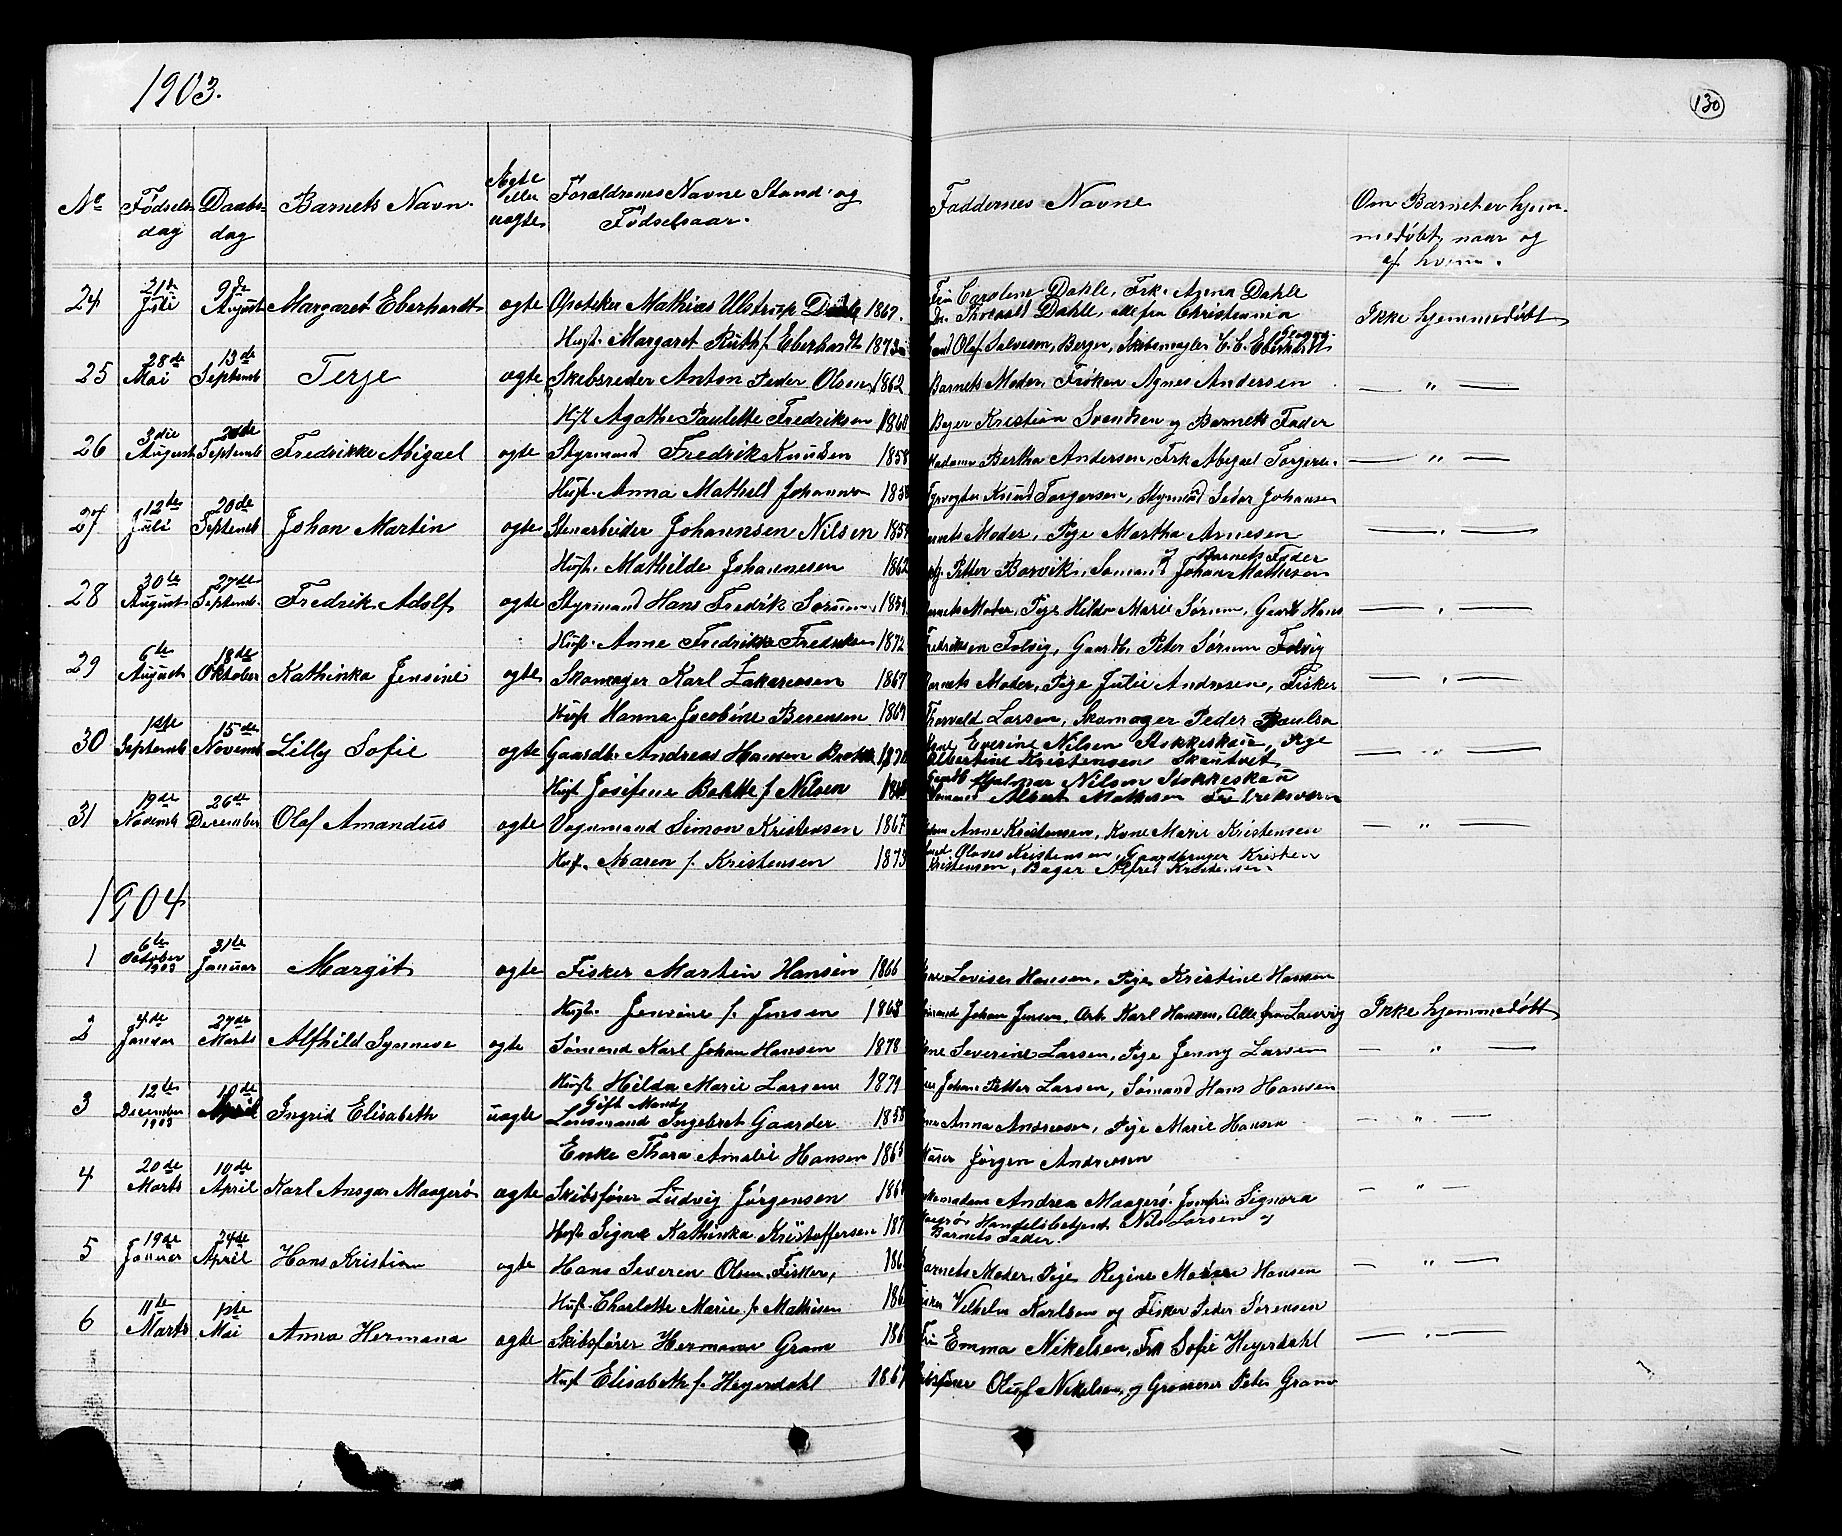 1903.
130
No Fødsels- Daabs- Barnets Navn. Ægte Foraldrenes Navne Stand og Faddernes Navne Om Barnet er hjem-
dag dag eller Fødselsaar. medøbt, naar og
uægte af hvem.
24 21de Juli 9de August Margaret Eberhardt ægte Apoteker Mathias Ulstrup Dahle 1867. Fru Carolene Dahle, Frk. Agena Dahle Ikke hjemmedøbt
Dr. Thorvald Dahle, alle fra Christiania
Hust. Margaret Ruth f Eberhardt 1873 Olaf Salvesen, Berger, Skibsmægler C. C. Eberhardt
25 28de Mai 13de Septemb Terje ægte Skibsreder Anton Peder Olsen 1862 Barnets Moder, Frøken Agnes Andersen — " —
Hust Agathe Paulette Fredriksen 1868 Kristian Svendsen og Barnets Fader
26 3die August 20de Septemb Fredrikke Abigael ægte Styrmand Fredrik Knudsen 1858 Madame Bertha Andersen, Frk Abigael Torgers. — " —
Hust. Anna Mathild Johannesen Fyrvogter Knud Torgersen, Styrmand Peder Johansen
27 12te Juli 20de Septemb Johan Martin ægte Stenarbeider Johannsen Nilsen 1859 Moder, Pige Martha Arnesen — " —
Hust. Mathilde Johannesen 1862 Petter Barvik, Sømand Johan Mathisen og Barnets Fader
28 30te August 27de Septemb. Fredrik Adolf ægte Styrmand Hans Fredrik Sørum 1859 Moder, Pige Hilda Marie Sørum, Gaardb Hans — " —
Hust. Anne Fredrikke Fredriksen 1872 Fredriksen Folvig, Gaardb. Peter Sørum Folvig
29 6te August 18de Oktober Kathinka Jensine ægte Skomager Karl Zakariasen 1867 Barnets Moder, Pige Julie Andresen, Fisker — " —
Hust Hanna Jacobine Berensen 1869 Thorvald Larsen, Skomager Peder Paulsen
30 1ste Septemb 15de Novemb Lilly Sofie ægte Gaardb. Andreas Hansen Kone Everine Nilsen Stokkeskau, Pige — " —
Albertine Kristensen Skautvet
Hust Josifine f Nilsen Gaardb Hjalmar Nilsen Stokkeskau
Sømand Albert Mathisen Fredriksværn
31 19de Novemb 26de December Olaf Amandus ægte Vognmand Simon Kristensen 1867 Anne Kristensen, Kone Marie Kristensen — " —
Hust. Maren f. Kristensen 1873 Olaves Kristensen, Gaardbruger Kristen
Kristensen, Bager Alfred Kristensen.
1904
1 6te October 1903 31te Januar Margit ægte Fisker Martin Hansen 1866 Lovise Hansen, Pige Kristine Hansen
Hust. Jensine f. Jensen 1868 Johan Jensen, Arb. Karl Hansen, Alle fra Laurvig Ikke hjemmedøbt
2 4de Januar 27de Marts Alfhild Synnøve ægte Sømand Karl Johan Hansen 1878 Kone Severine Larsen, Pige Jenny Larsen — " —
Hust Hilda Marie Larsen 1879 Johan Petter Larsen, Sømand Hans Hansen
3 12te December 1903 10de April Ingrid Elisabeth uægte Gift Mand
Lensmand Ingebret Gaarder 1858 Anna Andresen, Pige Marie Hansen — " —
Enke Thora Amalie Hansen Jørgen Andresen
4 20de Marts 10de April Karl Ansgar Maagerø ægte Skibsfører Ludvig Jørgensen Andrea Maagerø. Jomfru Signora — " —
Hust Signe Kathinka Kristoffersen Maagerø, Handelsbetjent Nils Larsen og
Barnets Fader.
5 19de Januar 24de April Hans Kristian ægte Hans Severen Olsen, Fisker, Barnets Moder, Pige Regine Hansen — " —
Hust. Charlotte Marie f. Mathisen Fisker Vilhelm Karlsen og Fisker Peder Sørensen
6 11te Marts 1ste Mai Anna Hermana ægte Skibsfører Hermann Gram Fru Emma Nikelsen, Frk Sofie Heyerdahl — " —
Hust Elisabeth f. Heyerdahl 1867 Skibsfører Oluf Nikelsen, og Grosserer Peter Gram